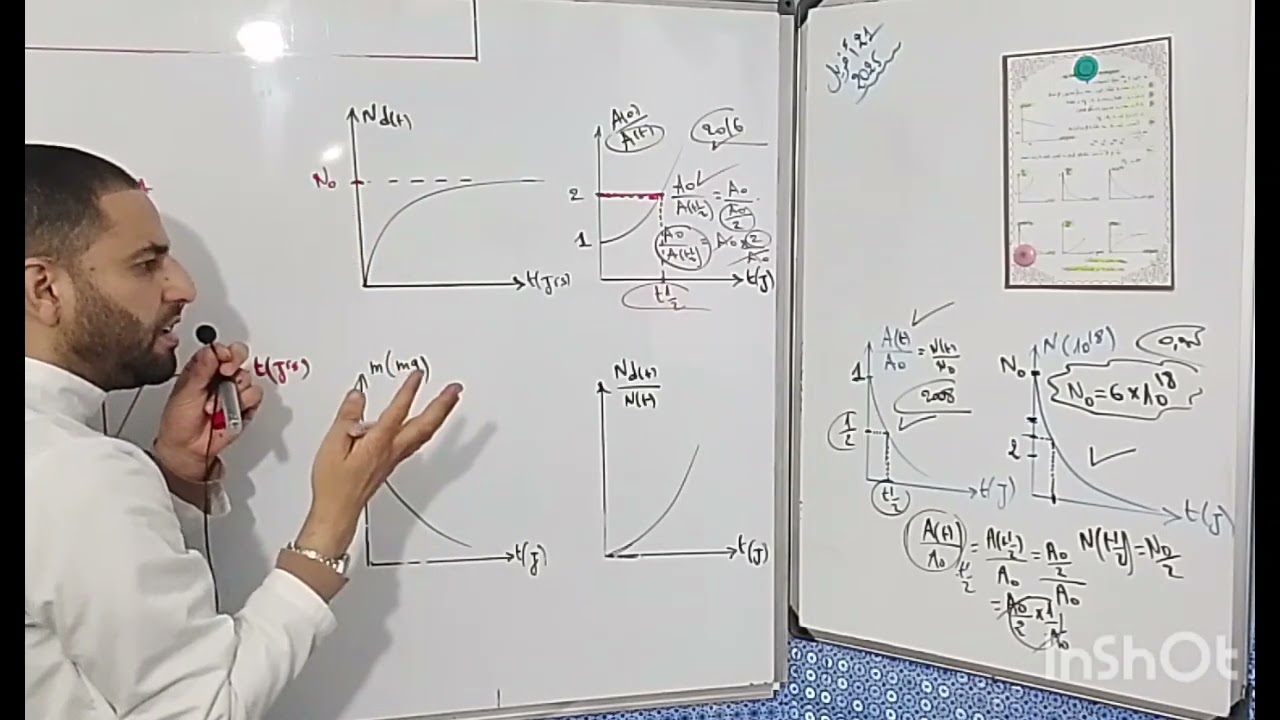 Nd(t)
N₀
t(J(s)
A(0)/A(t)
2016
2
A0/A(t½) = A0/(A0/2)
1
A0/A(t½) = A0 × 2/A0
t(J)
t½
t(J(s)
m(mg)
t(J)
Nd(t)/N(t)
t(J)
21 أفريل
2025
A(t)/A0 = N(t)/N0
1
2008
1/2
t½
t(J)
N(10¹⁸)
N₀
N₀ = 6×10¹⁸
2
t(J)
A(t)/A0 t½ = A(t½)/A0 = (A0/2)/A0
= A0/2 × 1/A0
N(t½) = N0/2
InShOt